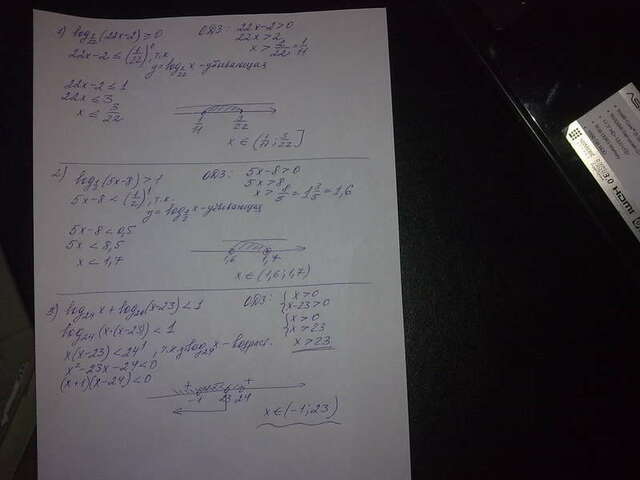 1) log_{1/22}(22x-2) ≥ 0   ОДЗ: 22x-2>0
22x>2
22x-2 ≤ (1/22)⁰, т.к.   x > 2/22 = 1/11
y = log_{1/22} x - убывающая
22x-2 ≤ 1
22x ≤ 3
x ≤ 3/22
1/11   3/22
x ∈ (1/11; 3/22]
2) log_{1/2}(5x-8) > 1   ОДЗ: 5x-8>0
5x>8
5x-8 < (1/2)¹, т.к.   x > 8/5 = 1 3/5 = 1,6
y = log_{1/2} x - убывающая
5x-8 < 0,5
5x < 8,5
x < 1,7
1,6   1,7
x ∈ (1,6; 1,7)
3) log_{24} x + log_{24}(x-23) < 1   ОДЗ: { x>0
x-23>0
log_{24}(x·(x-23)) < 1   { x>0
x>23
x(x-23) < 24¹, т.к. y=log_{24} x - возраст.   x>23
x²-23x-24<0
(x+1)(x-24)<0
+ - +
-1   23 24
x ∈ (-1; 23)